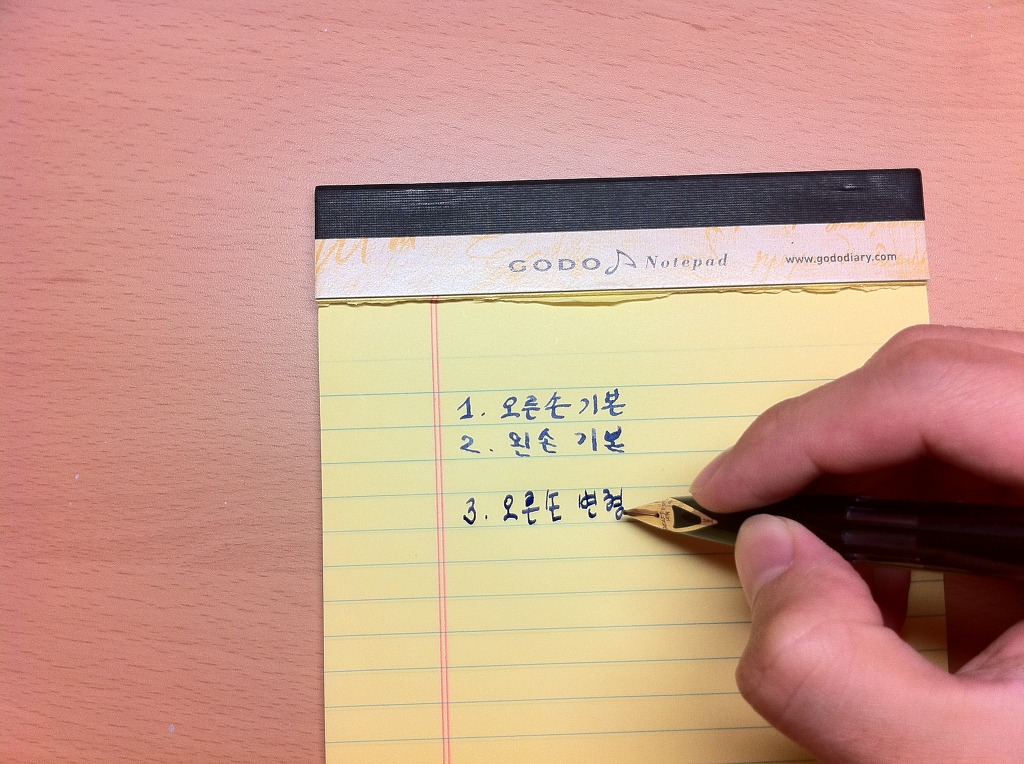 GODO Notepad www.gododiary.com
1. 오른손 기본
2. 왼손 기본
3. 오른손 변형